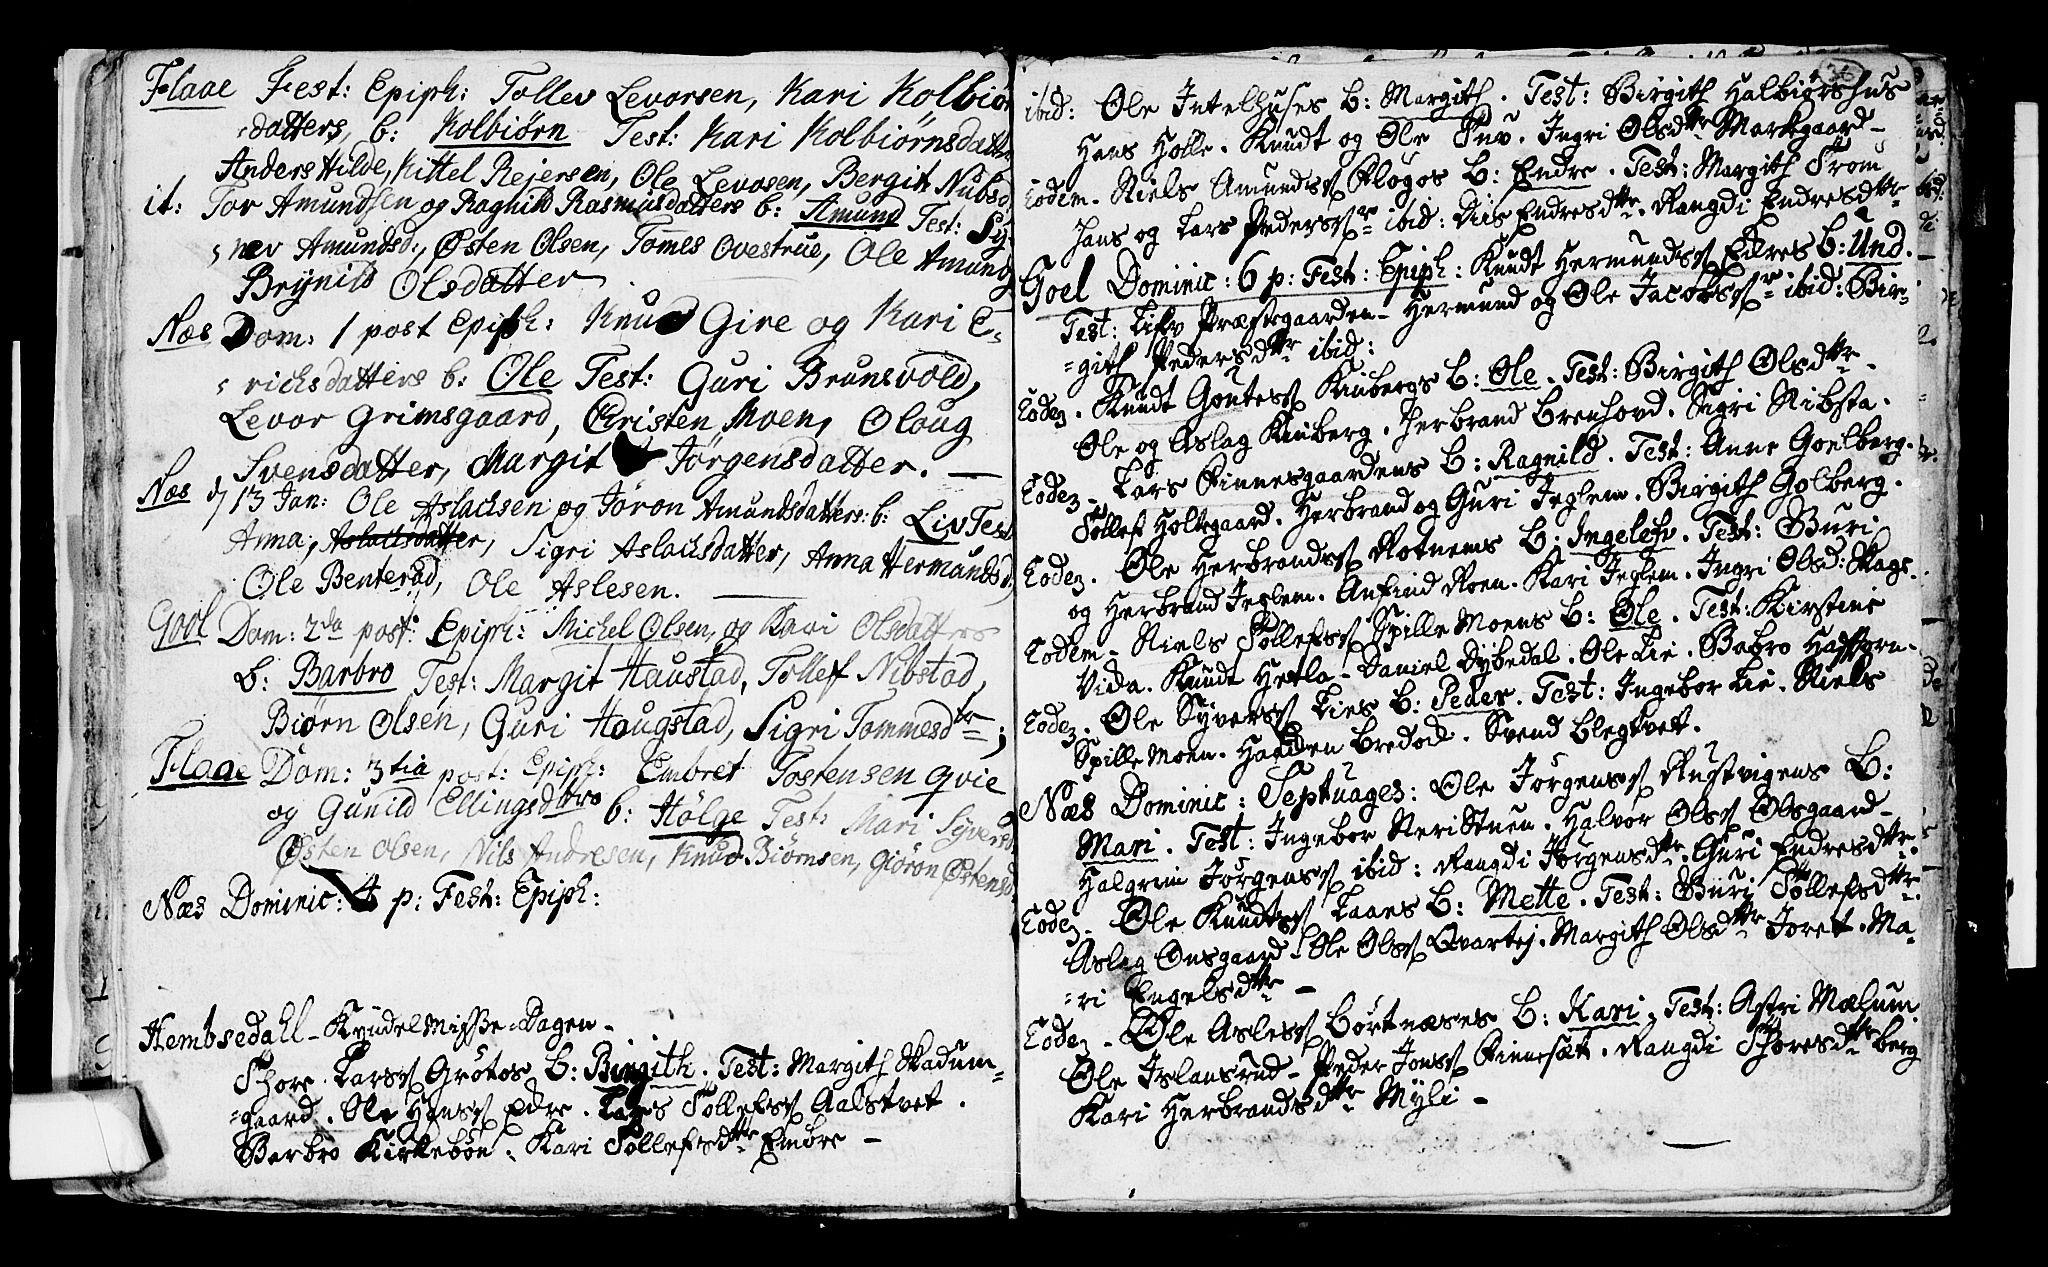 Flaae Fest: Epiph: Tollev Levorsen, Kari Kolbiørn
datters, b: Kolbiørn Test: Kari Kolbiørnsdatter
Anders Hilde, Kittel Rejersen, Ole Levosen, Bergit Nubsd
it: Tor Amundsen og Ragnild Rasmusdatters b: Amund Test: Sy-
nev Amundsd:, Østen Olsen, Tomes Ovestrue, Ole Amunds
Brynild Olsdatter
Næs Dom: 1 post Epiph: Knud Gire og Kari E-
richsdatters b: Ole Test: Guri Brunsvold,
Levor Grimsgaard, Christen Moen, Oloug
Svensdatter, Margit Jørgensdatter. —
Næs d 13 Jan: Ole Aslachsen og Jøron Amundsdatters b: Liv Test
Anna, Aslachsdatter, Sigri Aslachsdatter, Anna Hermundsd,
Ole Benterud, Ole Aslesen. —
Gool Dom: 2da post: Epiph: Michel Olsen, og Kari Olsdatters
b: Barbro Test: Margit Haustad, Tollef Nibstad,
Biørn Olsen, Guri Haugstad, Sigri Tommesdtr;
Flaae Dom: 3tia post: Epiph: Embret Tostensen qvie
og Gunild Ellingsdtrs b: Hølge Test: Mari Syversd
Østen Olsen, Nils Andresen, Knud Biørnsen, Giøron Østensd
Næs Dominic: 4 p: Fest: Epiph:
Hembsedahl - Kyndelmisse-Dagen -
Thore Lars Grøtos B: Birgith. Test: Margith Skadum-
-gaard. Ole Hans Edre. Lars Tollefs Aalstvet.
Barbro Kirkebøn. Kari Tollefsdtr Embre —
36
ibid: Ole Intelhuses B: Margith. Test: Birgith Halbiørshus
Hans Holle. Knudt og Ole Tuv. Ingri Olsdtr Markegaard -
Eodem. Niels Amunds Fløgos B: Endre. Test: Margith Trom
Jans og Lars Peders ibid: Liis Endresdtr. Rangdi Endresdtr
Goel Dominic: 6 p: Fest: Epiph: Knudt Hermunds Edres B: Und.
Test: Liv Præstegaarden - Hermund og Ole Jacobs ibid: Bir-
-gith Pedersdtr ibid:
Eodem. Knudt Goutes Kinbergs B: Ole. Test: Birgith Olsdtr -
Ole og Aslag Kinberg. Herbrand Brenhovd. Sigri Nibsta.
Eodem - Lars Finnesgaardens B: Ragnild. Test: Anne Goelberg.
Tollef Holtegaard. Herbrand og Guri Jeglem. Birgith Golberg.
Eodem. Ole Herbrands Rotnems B: Ingeleiv. Test: Guri
og Herbrand Jeglem. Anfind Roen. Kari Jeglem. Ingri Olsd:
Eodem - Niels Tollefs Spille Moens B: Ole. Test: Kirstine
Vida. Knudt Hesla - Daniel Dybedal. Ole Lie. Babro
Eodem. Ole Syvers Lies B: Peder. Test: Ingebor Lie. Niels
Spille Moen. Halden Bredod. Svend Blegtvet.
Næs Dominic: Septuages: Ole Jørgens Rustvigens B:
Mari. Test: Ingebor Neri Stuen. Halvor Ols Olsgaard -
Halgrim Jørgens ibid: Rangdi Jørgensdtr. Guri Endresdtr.
Eodem. Ole Knudts Laans B: Mette. Test: Guri Tollefsdtr.
Aslag Onsgaard - Ole Ols Qvartej. Margith Olsdtr Joret. Ma-
-ri Engelsdtr —
Eodem - Ole Asles Børtnæses B: Kari. Test: Astri Mælum
Ole Islansrud - Peder Jons Finnesæt. Rangdi Thoresdtr berg
Kari Herbrandsdtr Myli -